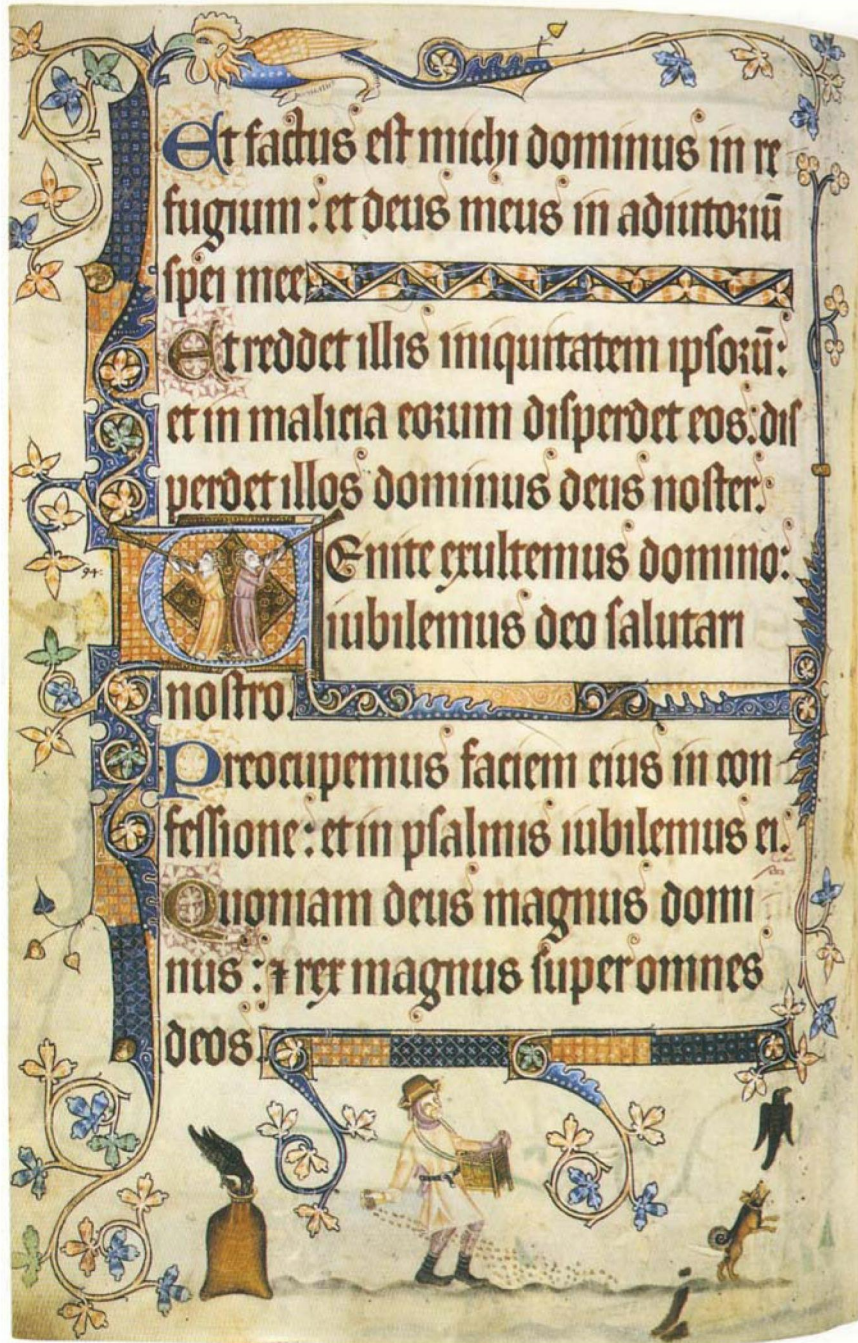 Et factus est michi dominus in re
fugium : et deus meus in adiutoriū
spei mee
Et reddet illis iniquitatem ipsorū :
et in malicia eorum disperdet eos : dis
perdet illos dominus deus noster .
94 .
VEnite exultemus domino :
iubilemus deo salutari
nostro .
Preocupemus faciem eius in con
fessione : et in psalmis iubilemus ei .
Quoniam deus magnus domi
nus : ⁊ rex magnus super omnes
deos .